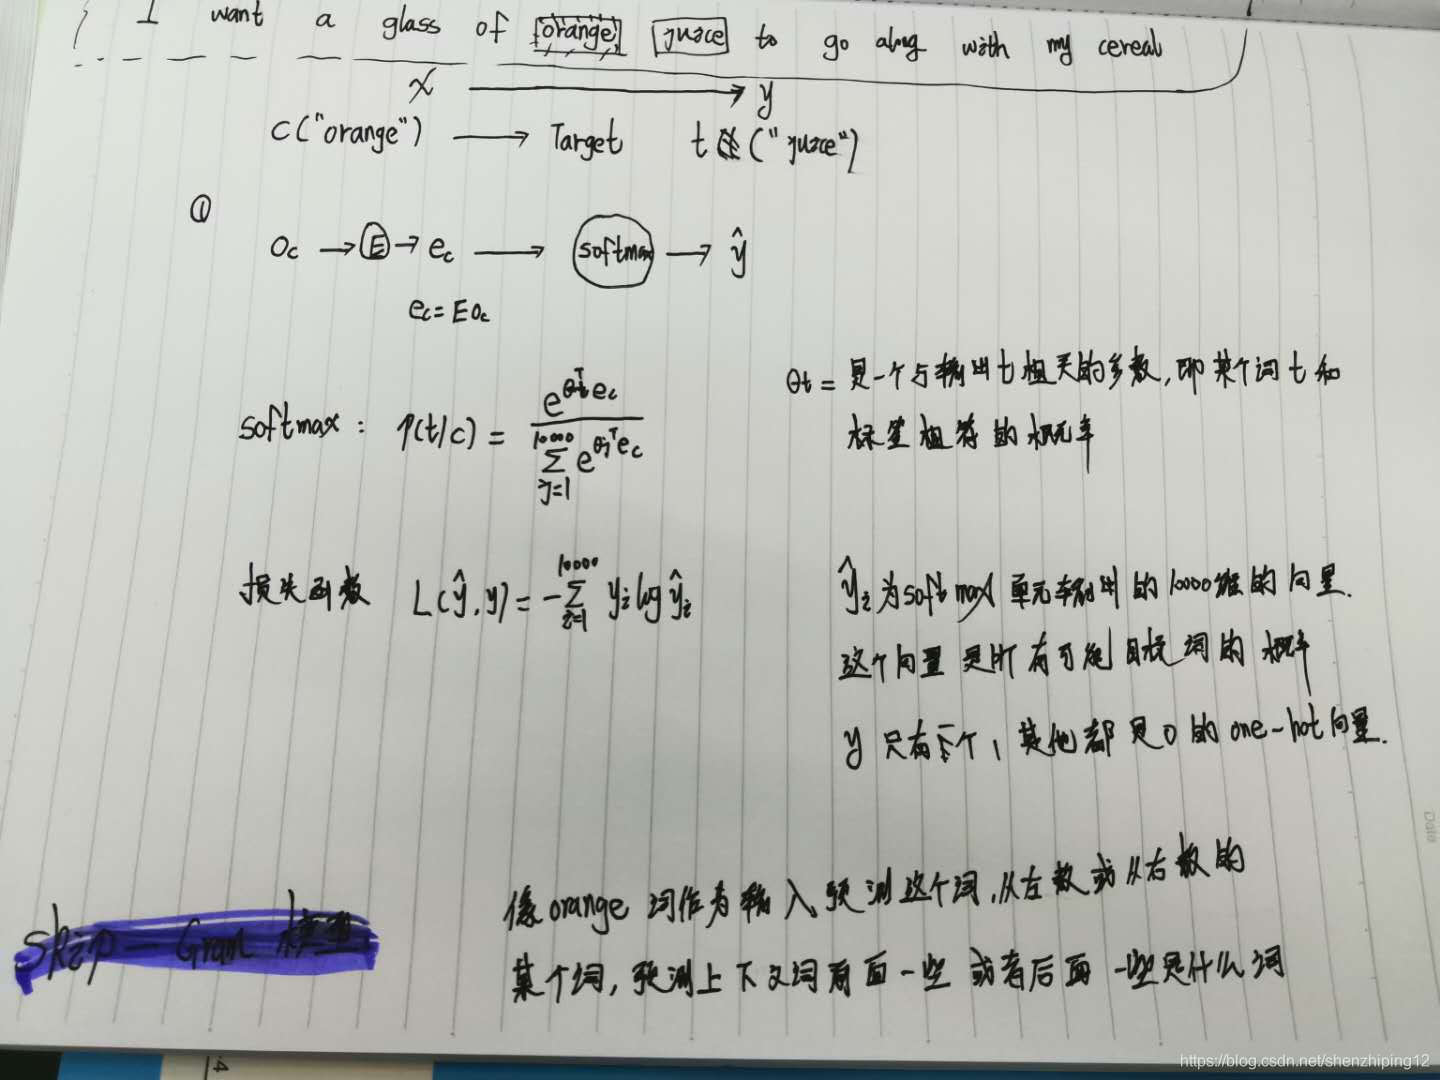 I want a glass of orange juice to go along with my cereal
x → y
C("orange") → Target t ("juice")
①
Oc → E → ec → softmax → ŷ
ec = EOc
softmax: p(t/c) = e^(θt^T ec) / Σ_{j=1}^{10000} e^(θj^T ec)
θt = 是一个与输出t相关的参数,即某个词t和
标签相符的概率
损失函数 L(ŷ,y) = -Σ_{i=1}^{10000} yi log ŷi
ŷi 为softmax 单元输出的10000维的向量.
这个向量是所有可能目标词的概率
y 只有一个1,其他都是0的one-hot向量.
Skip-Gram 模型
像orange 词作为输入,预测这个词,从左数或从右数的
某个词,预测上下文词前面一些或者后面一些是什么词
Date
4
https://blog.csdn.net/shenzhiping12